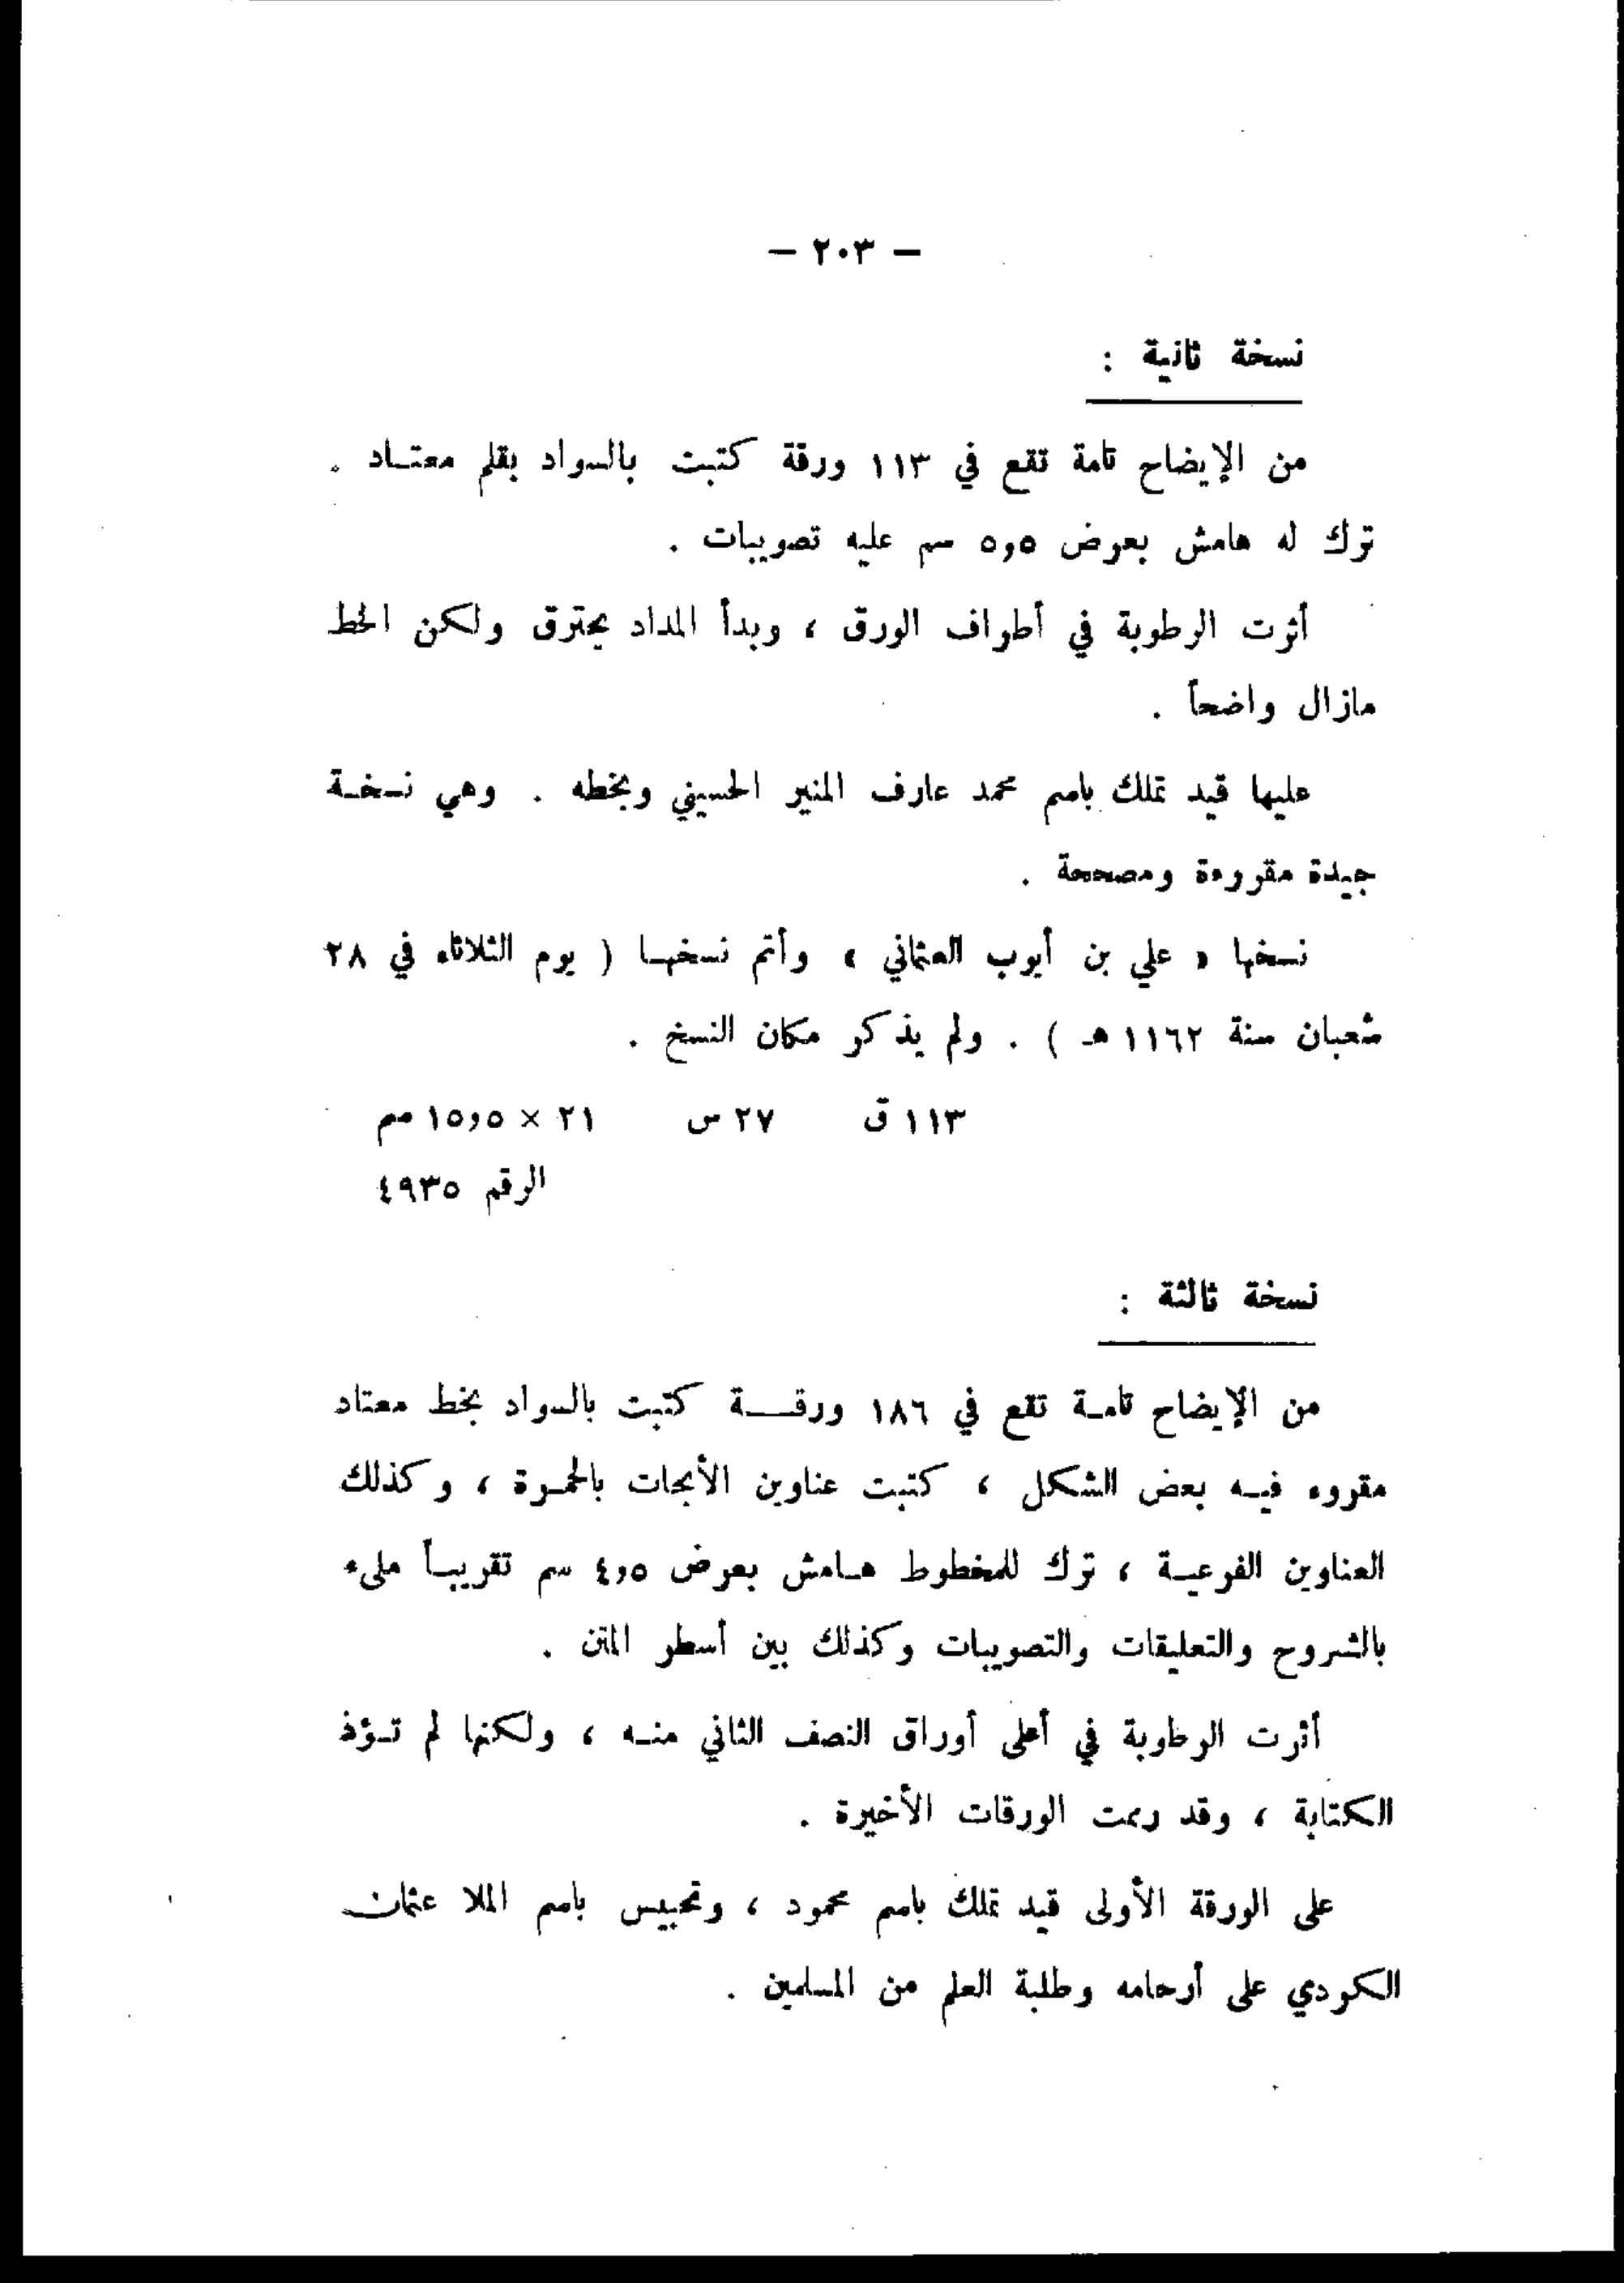 — ٢٠٣ —
نسخة ثانية :
من الإيضاح تامة تقع في ١١٣ ورقة كتبت بالسواد بقلم معتاد .
ترك له هامش بعرض ٥,٥ سم عليه تصويبات .
أثرت الرطوبة في أطراف الورق ، وبدأ المداد يحترق ولكن الخط
مازال واضحاً .
عليها قيد تملك باسم محمد عارف المنير الحسيني وبخطه . وهي نسخة
جيدة مقروءة ومصححة .
نسخها « علي بن أيوب العثماني » وأتم نسخها ( يوم الثلاثاء في ٢٨
شعبان سنة ١١٦٢ هـ ) . ولم يذكر مكان النسخ .
١١٣ ق ٢٧ س ٢١ × ١٥,٥ سم
الرقم ٤٩٣٥
نسخة ثالثة :
من الإيضاح تامة تقع في ١٨٦ ورقة كتبت بالسواد بخط معتاد
مقروء فيه بعض الشكل ، كتبت عناوين الأبحاث بالحمرة ، وكذلك
العناوين الفرعية ، ترك للمخطوط هامش بعرض ٤,٥ سم تقريباً مليء
بالشروح والتعليقات والتصويبات وكذلك بين أسطر المتن .
أثرت الرطوبة في أعلى أوراق النصف الثاني منه ، ولكنها لم تؤذ
الكتابة ، وقد رممت الورقات الأخيرة .
على الورقة الأولى قيد تملك باسم محمود ، وتحبيس باسم الملا عثمان
الكردي على أرحامه وطلبة العلم من المسلمين .